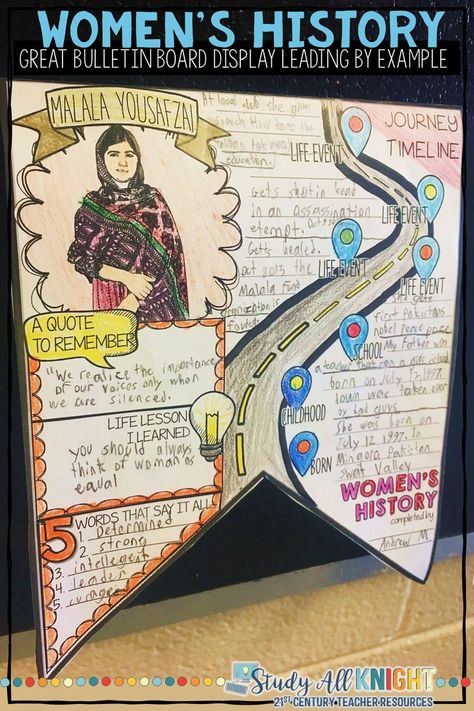 WOMEN'S HISTORY
GREAT BULLETIN BOARD DISPLAY LEADING BY EXAMPLE
MALALA YOUSAFZAI
A QUOTE
TO REMEMBER
"We realize the importance
of our voices only when
we are silenced.
LIFE LESSON
I LEARNED
you should always
think of woman as
equal
5 WORDS THAT SAY IT ALL
1. Determined
2. strong
3. intellegent
4. leader
5.
JOURNEY
TIMELINE
At local club she
speech How
education.
LIFE EVENT
Gets shot in head
in an assassination
etempt.
LIFE EVENT
Gets healed.
LIFE EVENT
out 2013 the
Malala Fund
is
founded
LIFE EVENT
gets
first Pakistans
nobel peace
SCHOOL
My Father was
a teacher that ran a
CHILDHOOD
born on July 12, 1997.
town was taken over
by bad guys
BORN
She was born on
July 12 1997. In
Mingora Pakistan
Swat Valley
WOMEN'S
HISTORY
completed by
Andrew M
Study All KNIGHT
21ST CENTURY TEACHER RESOURCES